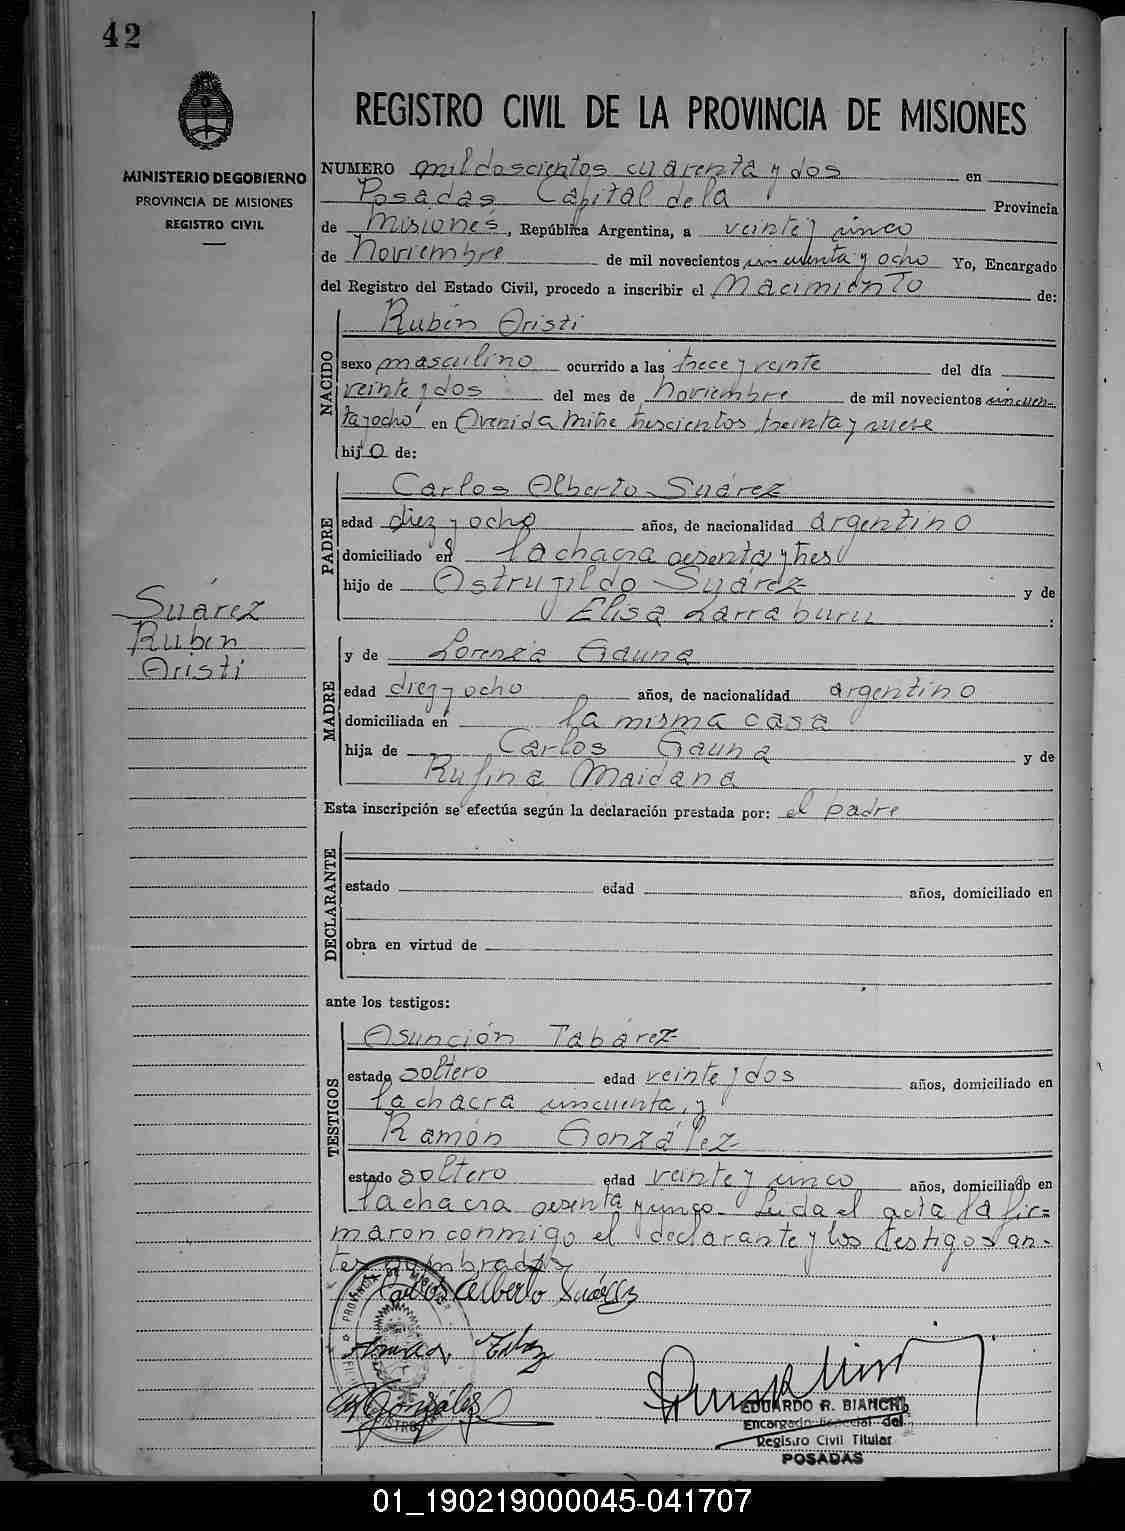 42
REGISTRO CIVIL DE LA PROVINCIA DE MISIONES
MINISTERIO DE GOBIERNO
PROVINCIA DE MISIONES
REGISTRO CIVIL
NUMERO mil doscientos cuarenta y dos en
Posadas Capital de la Provincia
de Misiones, República Argentina, a veinte y cinco
de Noviembre de mil novecientos cincuenta y ocho Yo, Encargado
del Registro del Estado Civil, procedo a inscribir el Nacimiento de:
NACIDO
Rubén Aristi
sexo masculino ocurrido a las trece y veinte del día
veinte y dos del mes de Noviembre de mil novecientos cincuen-
ta y ocho en Avenida Mitre trescientos treinta y nueve
hijo de:
PADRE
Carlos Alberto Suárez
edad diez y ocho años, de nacionalidad argentino
domiciliado en la chacra sesenta y tres
hijo de Astrugildo Suárez y de
Elisa Larraburu :
Suárez
Rubén
Aristi
MADRE
y de Lorenza Gauna
edad diez y ocho años, de nacionalidad argentino
domiciliada en la misma casa
hija de Carlos Gauna y de
Rufina Maidana
Esta inscripción se efectúa según la declaración prestada por: el padre
DECLARANTE
estado edad años, domiciliado en
obra en virtud de
ante los testigos:
TESTIGOS
Asunción Tabárez
estado soltero edad veinte y dos años, domiciliado en
la chacra cincuenta, y
Ramón González
estado soltero edad veinte y cinco años, domiciliado en
la chacra sesenta y cinco. Leida el acta la fir=
maron conmigo el declarante y los testigos an-
tes nombrados
Carlos Alberto Suárez
R González
EDUARDO R. BIANCHI
Encargado Especial del
Registro Civil Titular
POSADAS
01_190219000045-041707